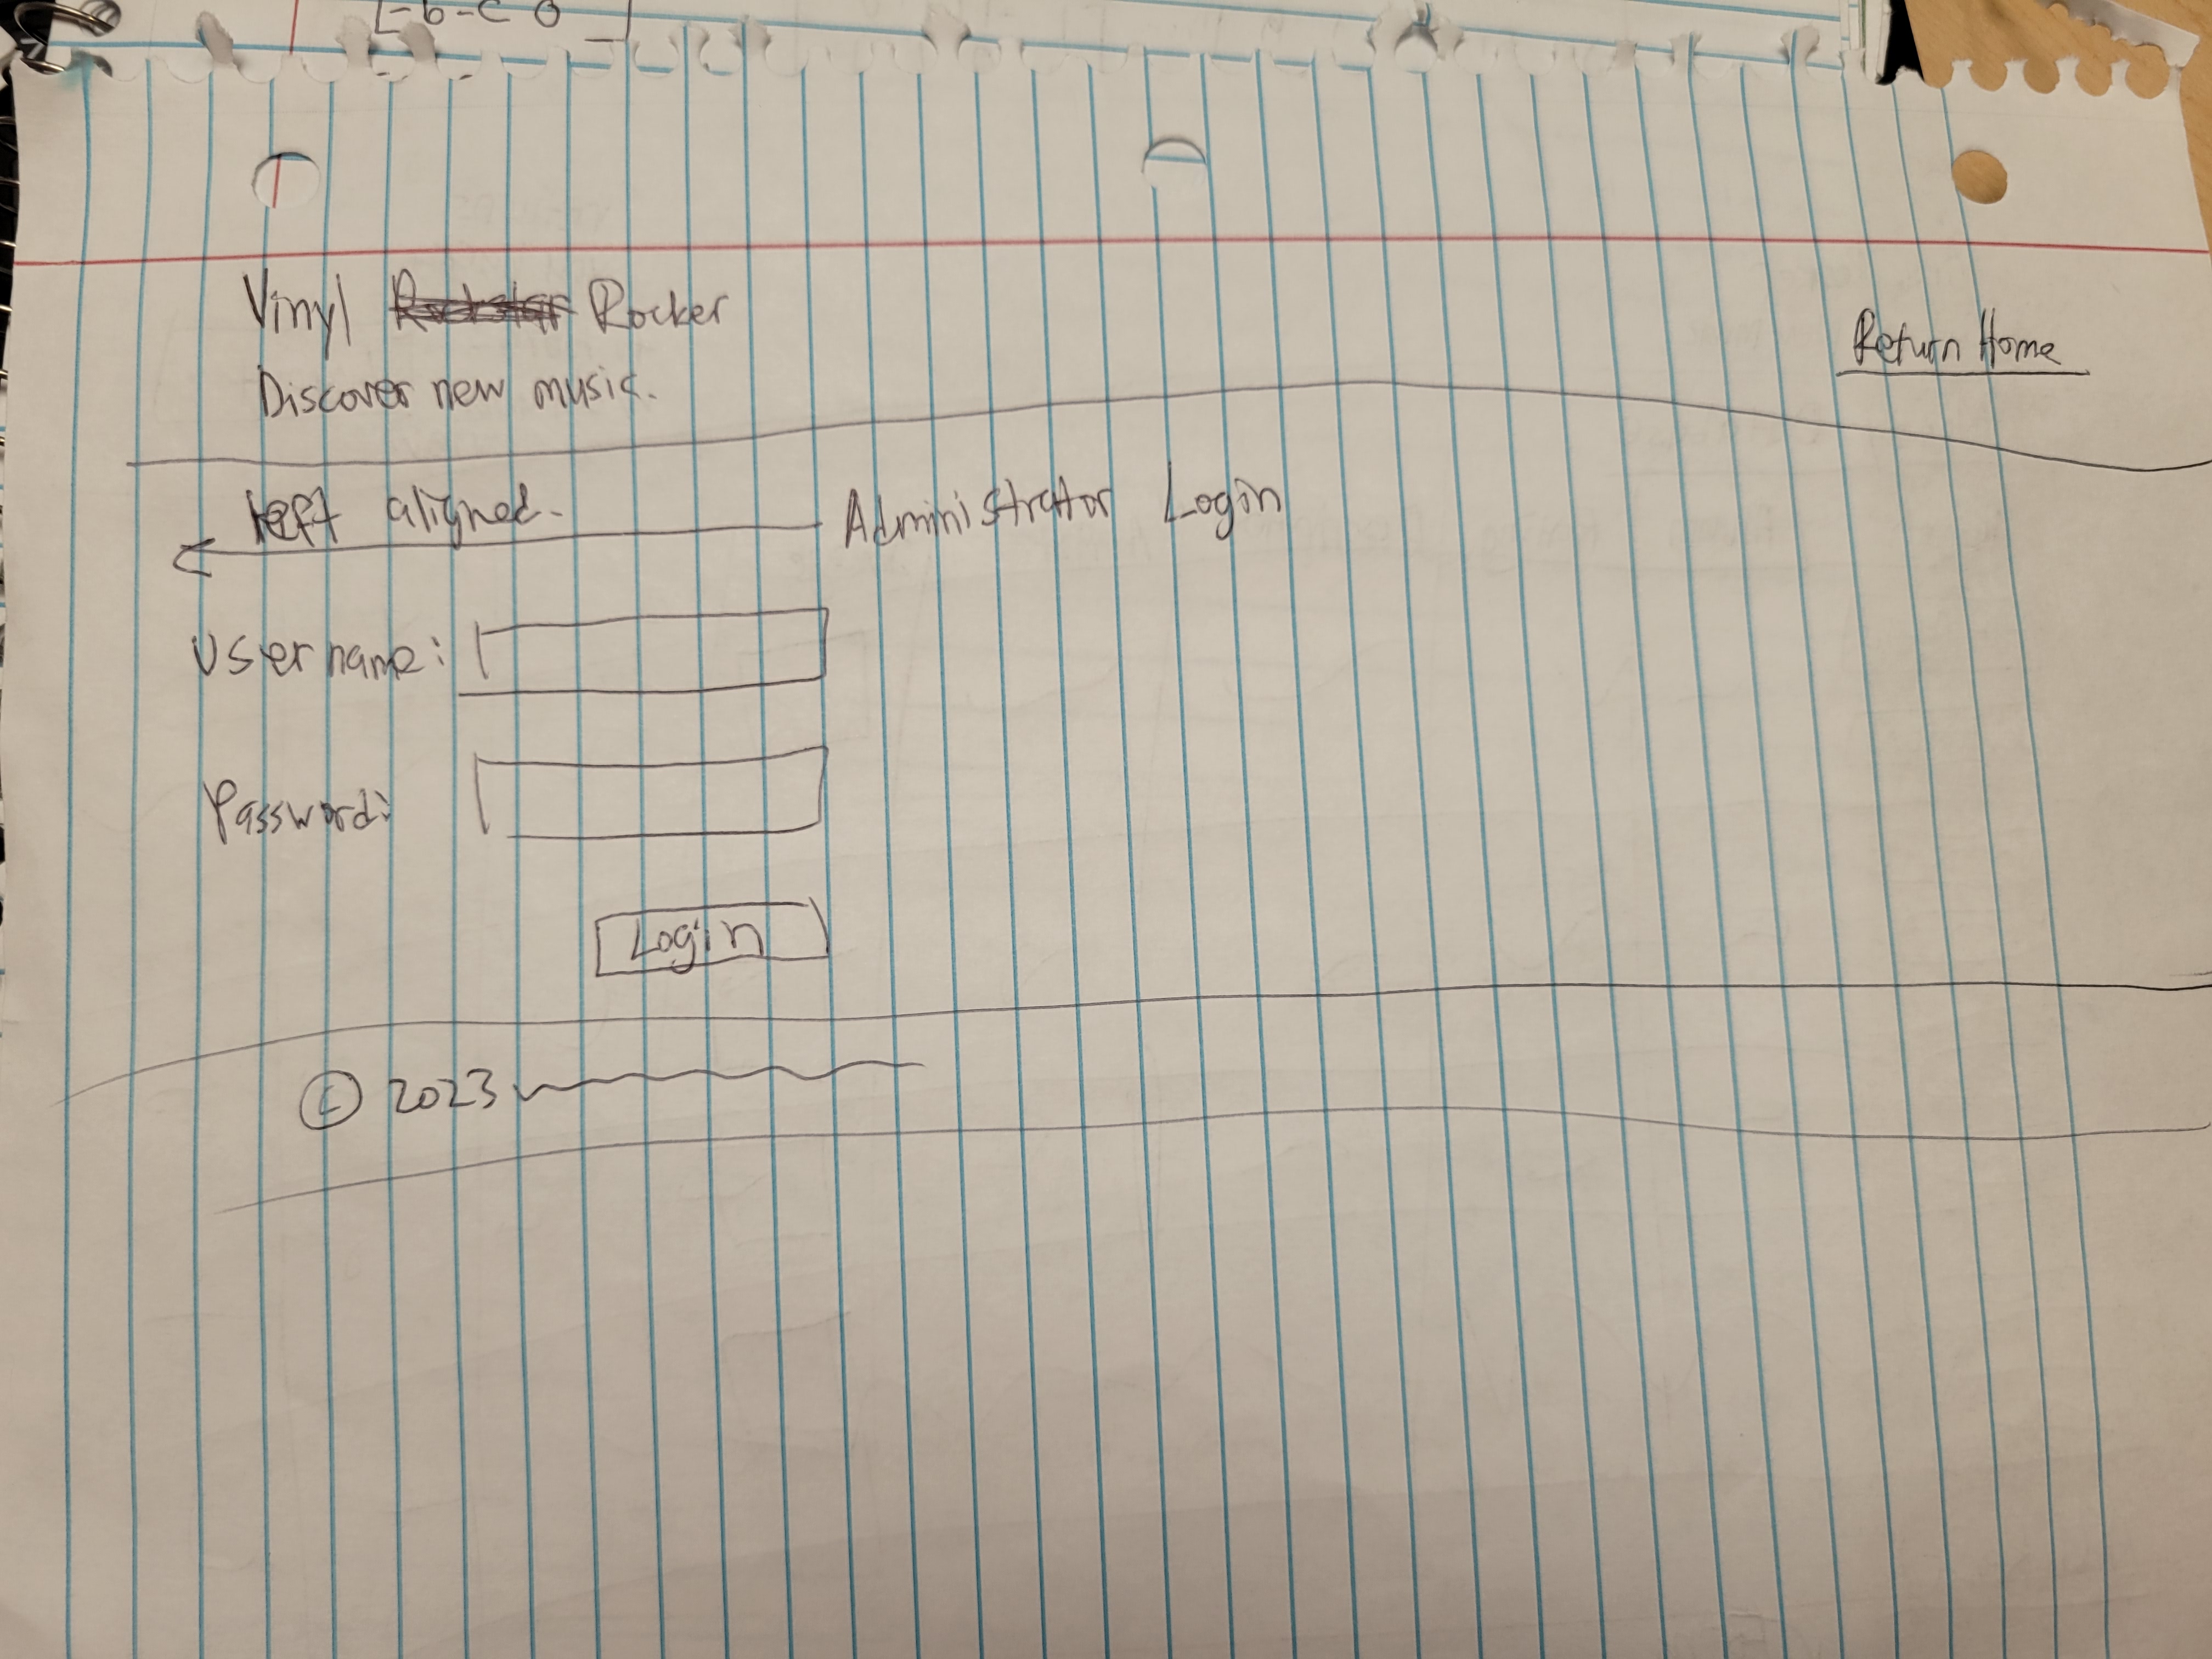 [-b-c 0
Vinyl Rocker
Discover new music.
Return Home
left aligned.
Administrator Login
Username:
Password:
Login
© 2023